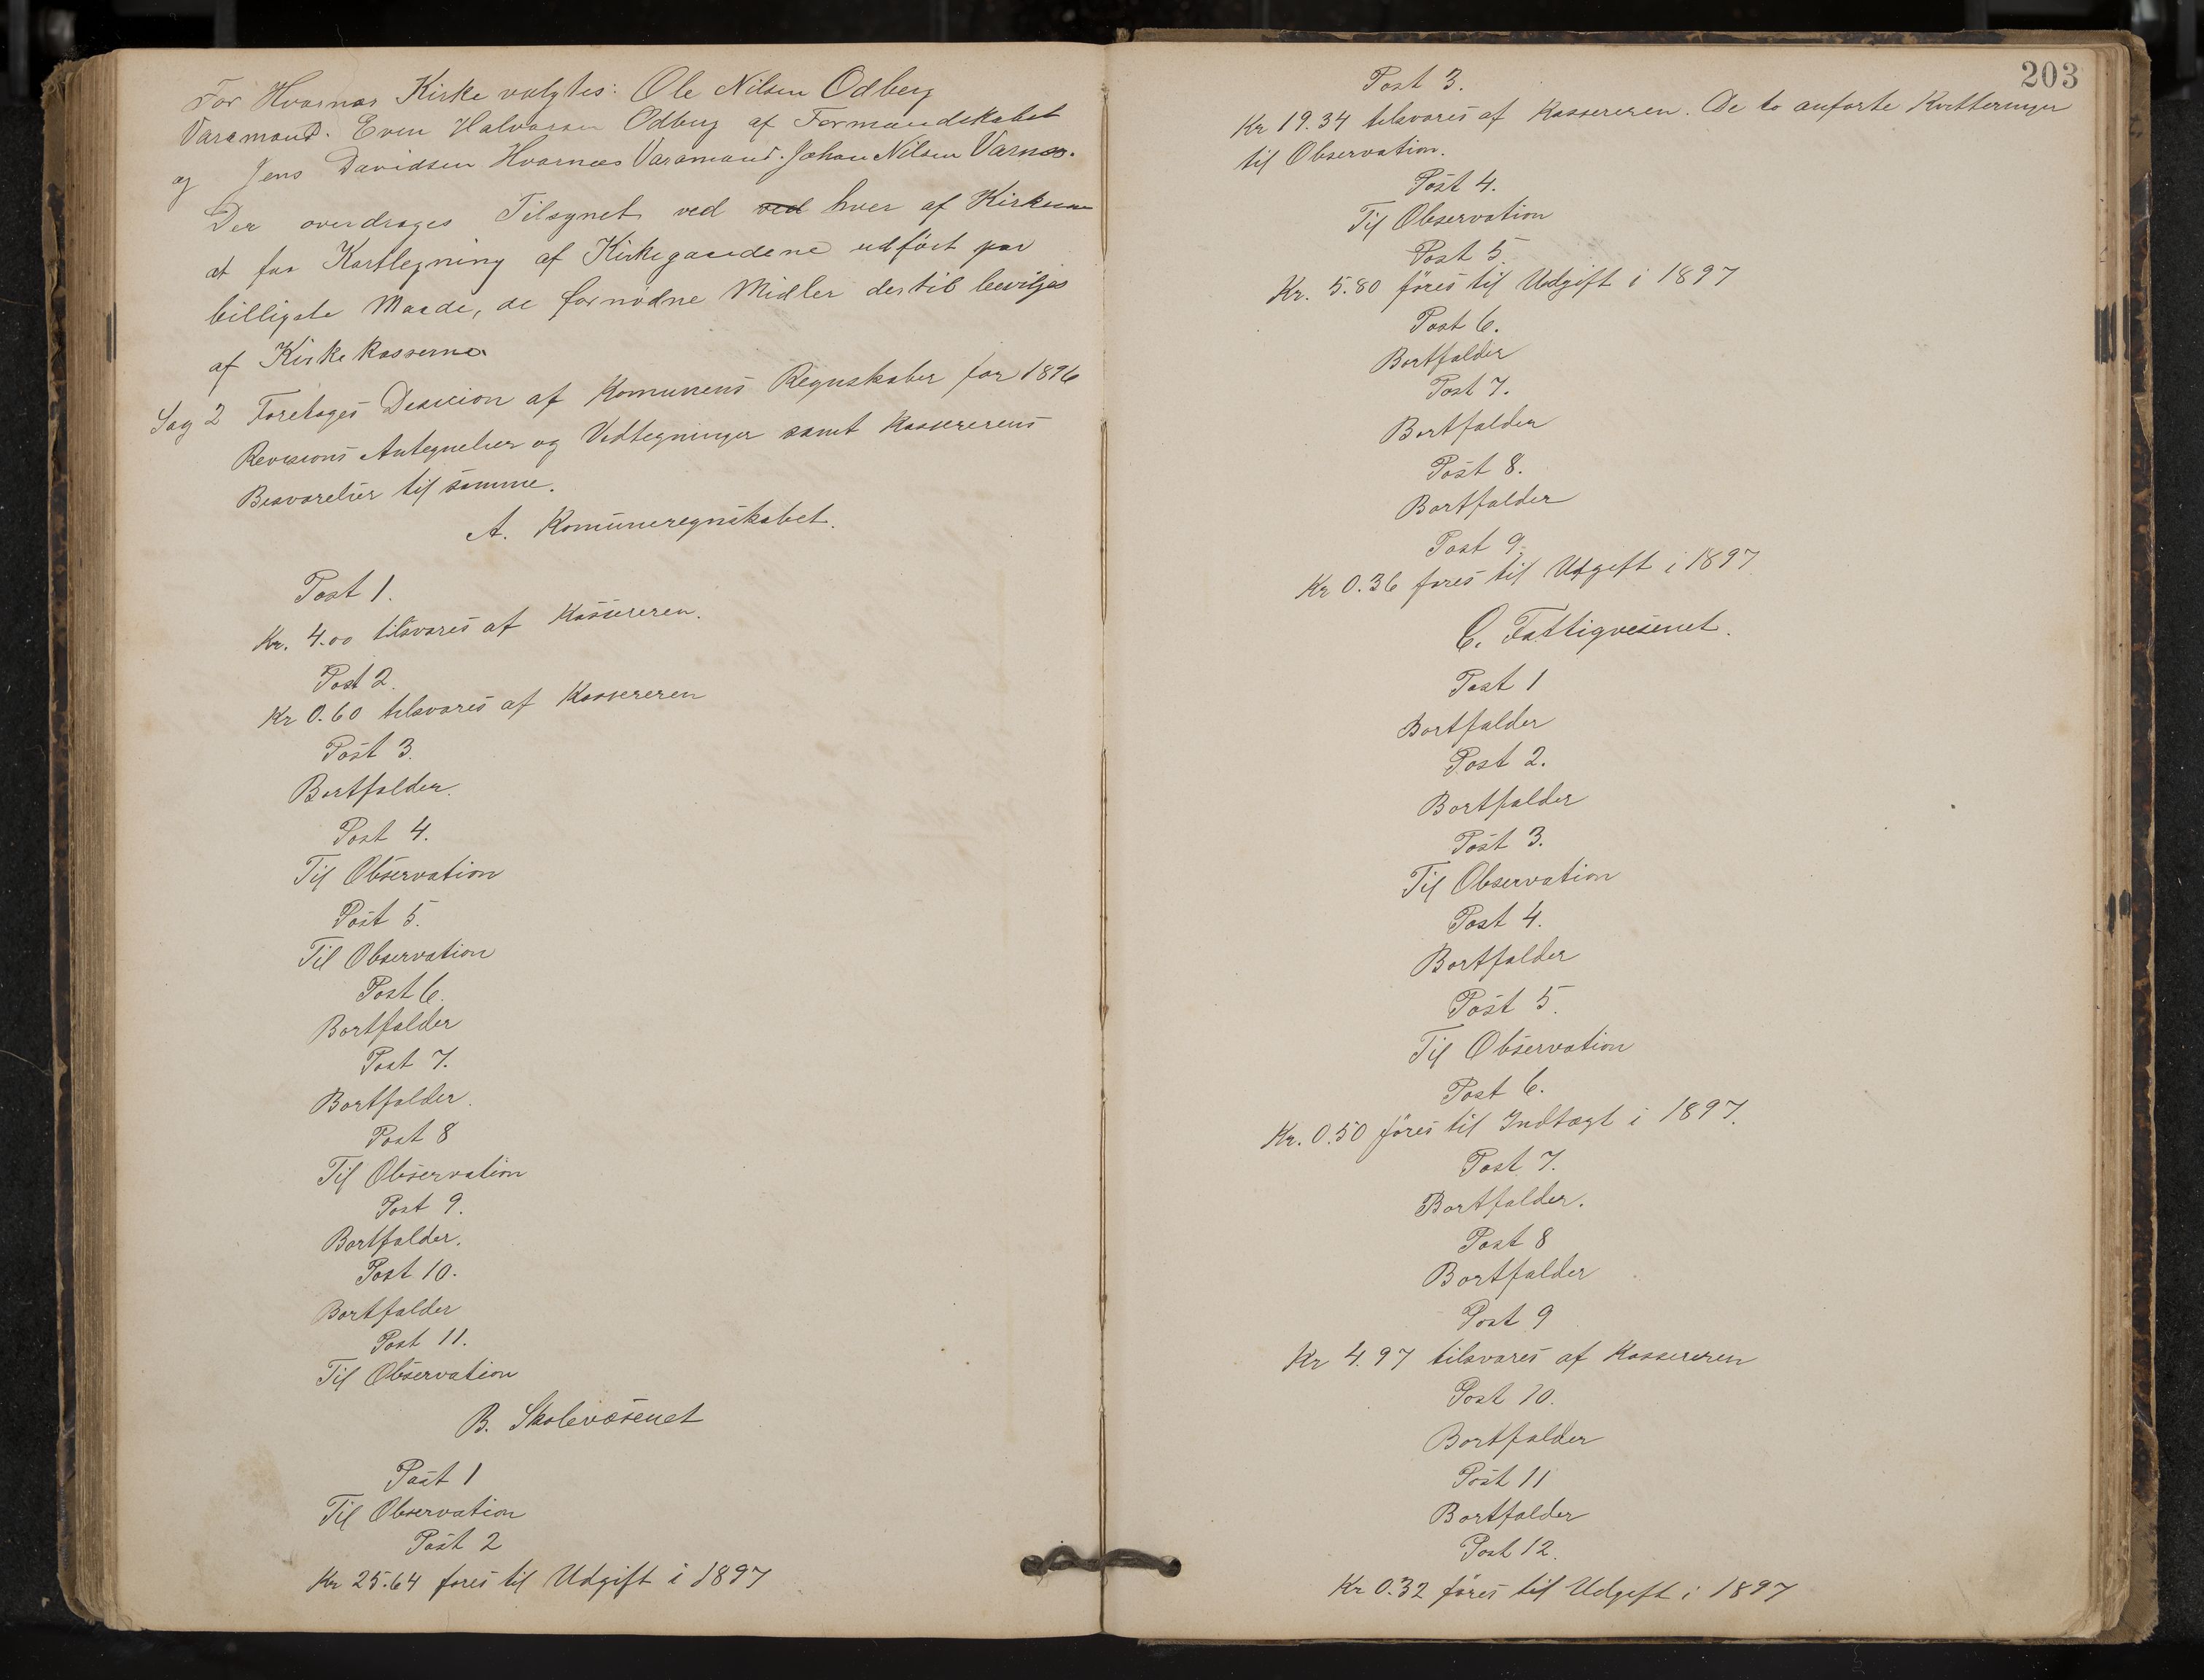 For Hvarnæs Kirke valgtes: Ole Nilsen Odberg
Varamand. Even Halvorsen Odberg af Formandskabet
og Jens Davidsen Hvarnæs Varamand. Johan Nilsen Varnæs.
Der overdrages Tilsynet ved ved hver af Kirkerne
at faa Kartlegning af Kirkegaardene udført paa
billigste Maade, de fornødne Midler dertil bevilges
af Kirkekasserne
Sag 2 Foretages Desicion af Komunens Regnskaber for 1896
Revisions Antegnelser og Vedtegninger samt Kassererens
Besvarelser til samme.
A. Komuneregnskabet.
Post 1.
Kr. 4.00 tilsvares af Kassereren.
Post 2.
Kr 0.60 tilsvares af Kassereren
Post 3.
Bortfalder.
Post 4.
Til Observation
Post 5.
Til Observation
Post 6.
Bortfalder
Post 7.
Bortfalder.
Post 8
Til Observation
Post 9.
Bortfalder.
Post 10.
Bortfalder
Post 11.
Til Observation
B. Skolevæsenet
Post 1
Til Observation
Post 2
Kr 25.64 føres til Udgift i 1897
203
Post 3.
Kr 19.34 tilsvares af Kassereren. De to anførte Kvitteringer
til Observation.
Post 4.
Til Observation
Post 5.
Kr. 5.80 føres til Udgift i 1897
Post 6.
Bortfalder
Post 7.
Bortfalder
Post 8.
Bortfalder
Post 9.
Kr 0.36 føres til Udgift i 1897
C. Fattigvesenet.
Post 1
Bortfalder
Post 2.
Bortfalder
Post 3.
Til Observation
Post 4.
Bortfalder
Post 5.
Til Observation
Post 6.
Kr. 0.50 føres til Indtægt i 1897.
Post 7.
Bortfalder.
Post 8
Bortfalder
Post 9
Kr 4.97 tilsvares af Kassereren
Post 10.
Bortfalder
Post 11
Bortfalder
Post 12.
Kr 0.32 føres til Udgift i 1897